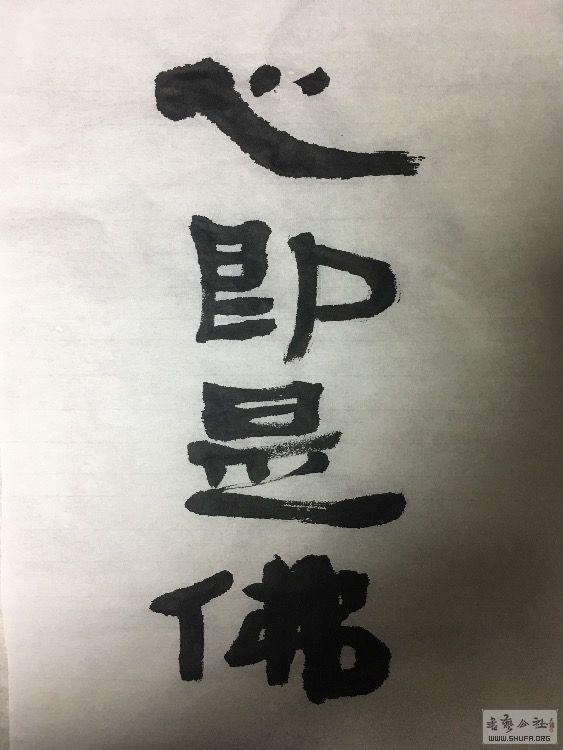 心即是佛
书艺公社
WWW.SHUFA.ORG